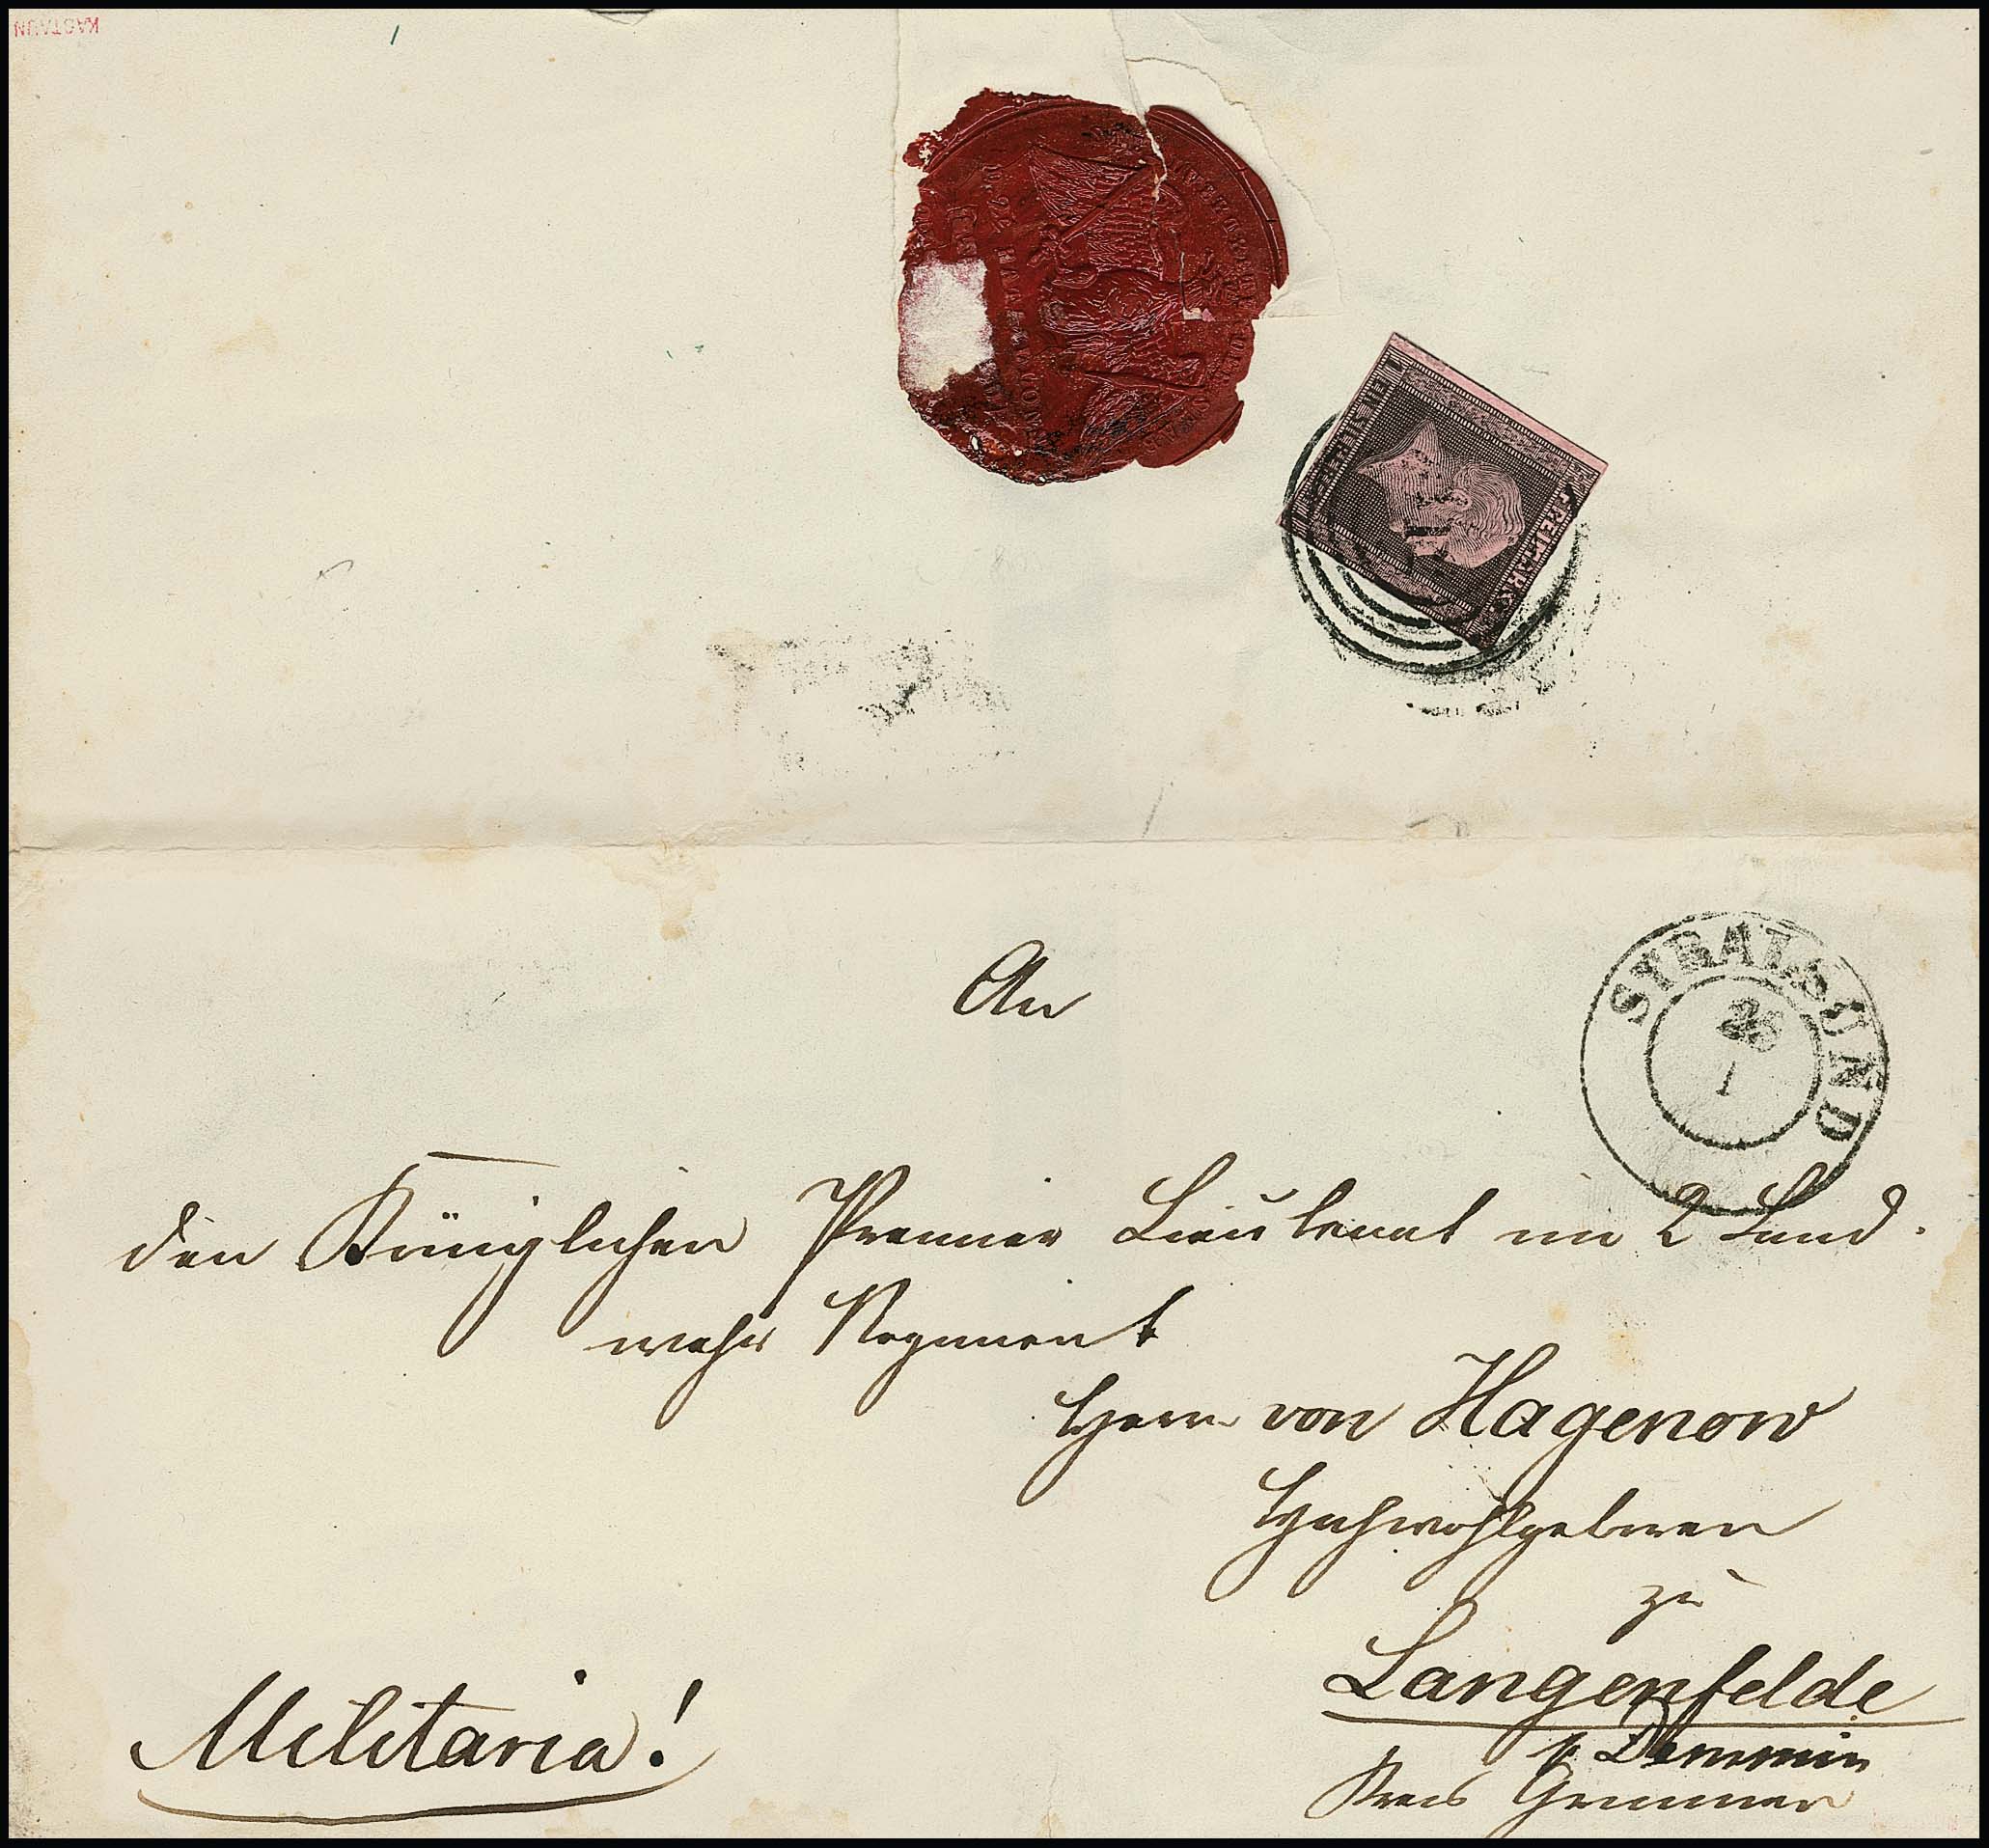 KASTAUN
FREIMARKE
STRALSUND
1
An
den Königlichen Premier Lieutenant im 2 Land-
wehr Regiment
Herrn von Hagenow
Hochwohlgeboren
zu
Langenfelde
p Demmin
Kreis Grimmen
Militaria!